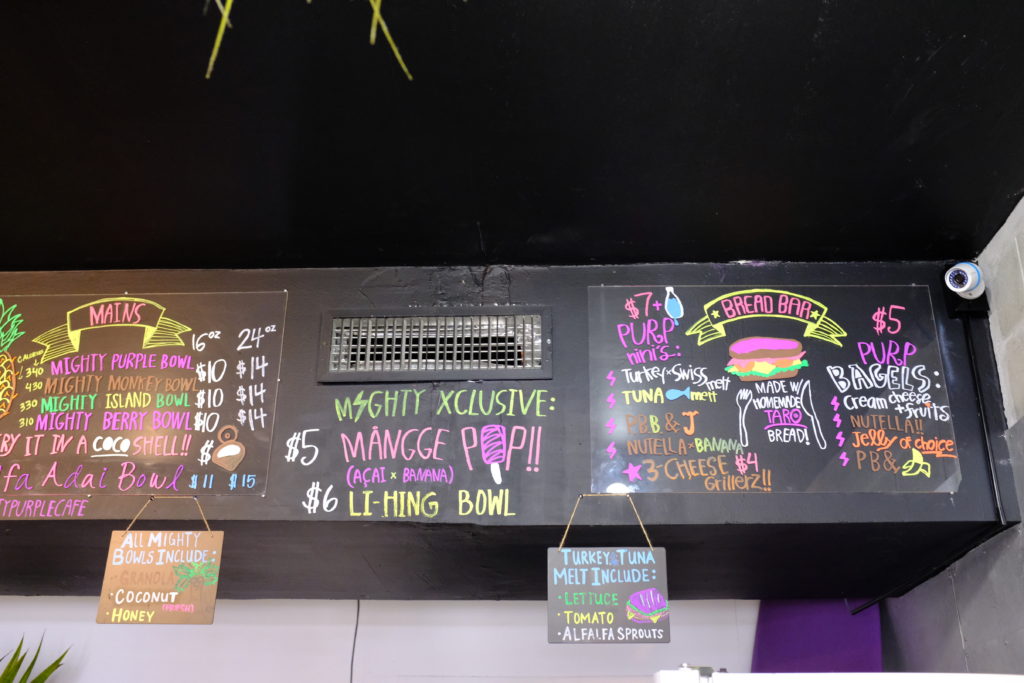 MAINS
16oz 24oz
CALORIES
340 MIGHTY PURPLE BOWL $10 $14
430 MIGHTY MONKEY BOWL $10 $14
330 MIGHTY ISLAND BOWL $10 $14
310 MIGHTY BERRY BOWL $10 $14
IT IN A COCO SHELL!!
Adai Bowl $11 $15
PURPLECAFE
ALL MIGHTY
BOWLS INCLUDE:
- GRANOLA
• COCONUT
• HONEY
MIGHTY XCLUSIVE:
$5 MÅNGGE POP!!
(AÇAI × BANANA)
$6 LI-HING BOWL
BREAD BAR
$7+
PURP
nini's:
Turkey × Swiss melt
TUNA melt
PBB & J
NUTELLA × BANANA
3-CHEESE $4
Grillerz!!
MADE W/
HOMEMADE
TARO
BREAD!
$5
PURP
BAGELS:
Cream cheese
+ fruits
NUTELLA!!
Jelly of choice
PB &
TURKEY & TUNA
MELT INCLUDE:
• LETTUCE
• TOMATO
• ALFALFA SPROUTS